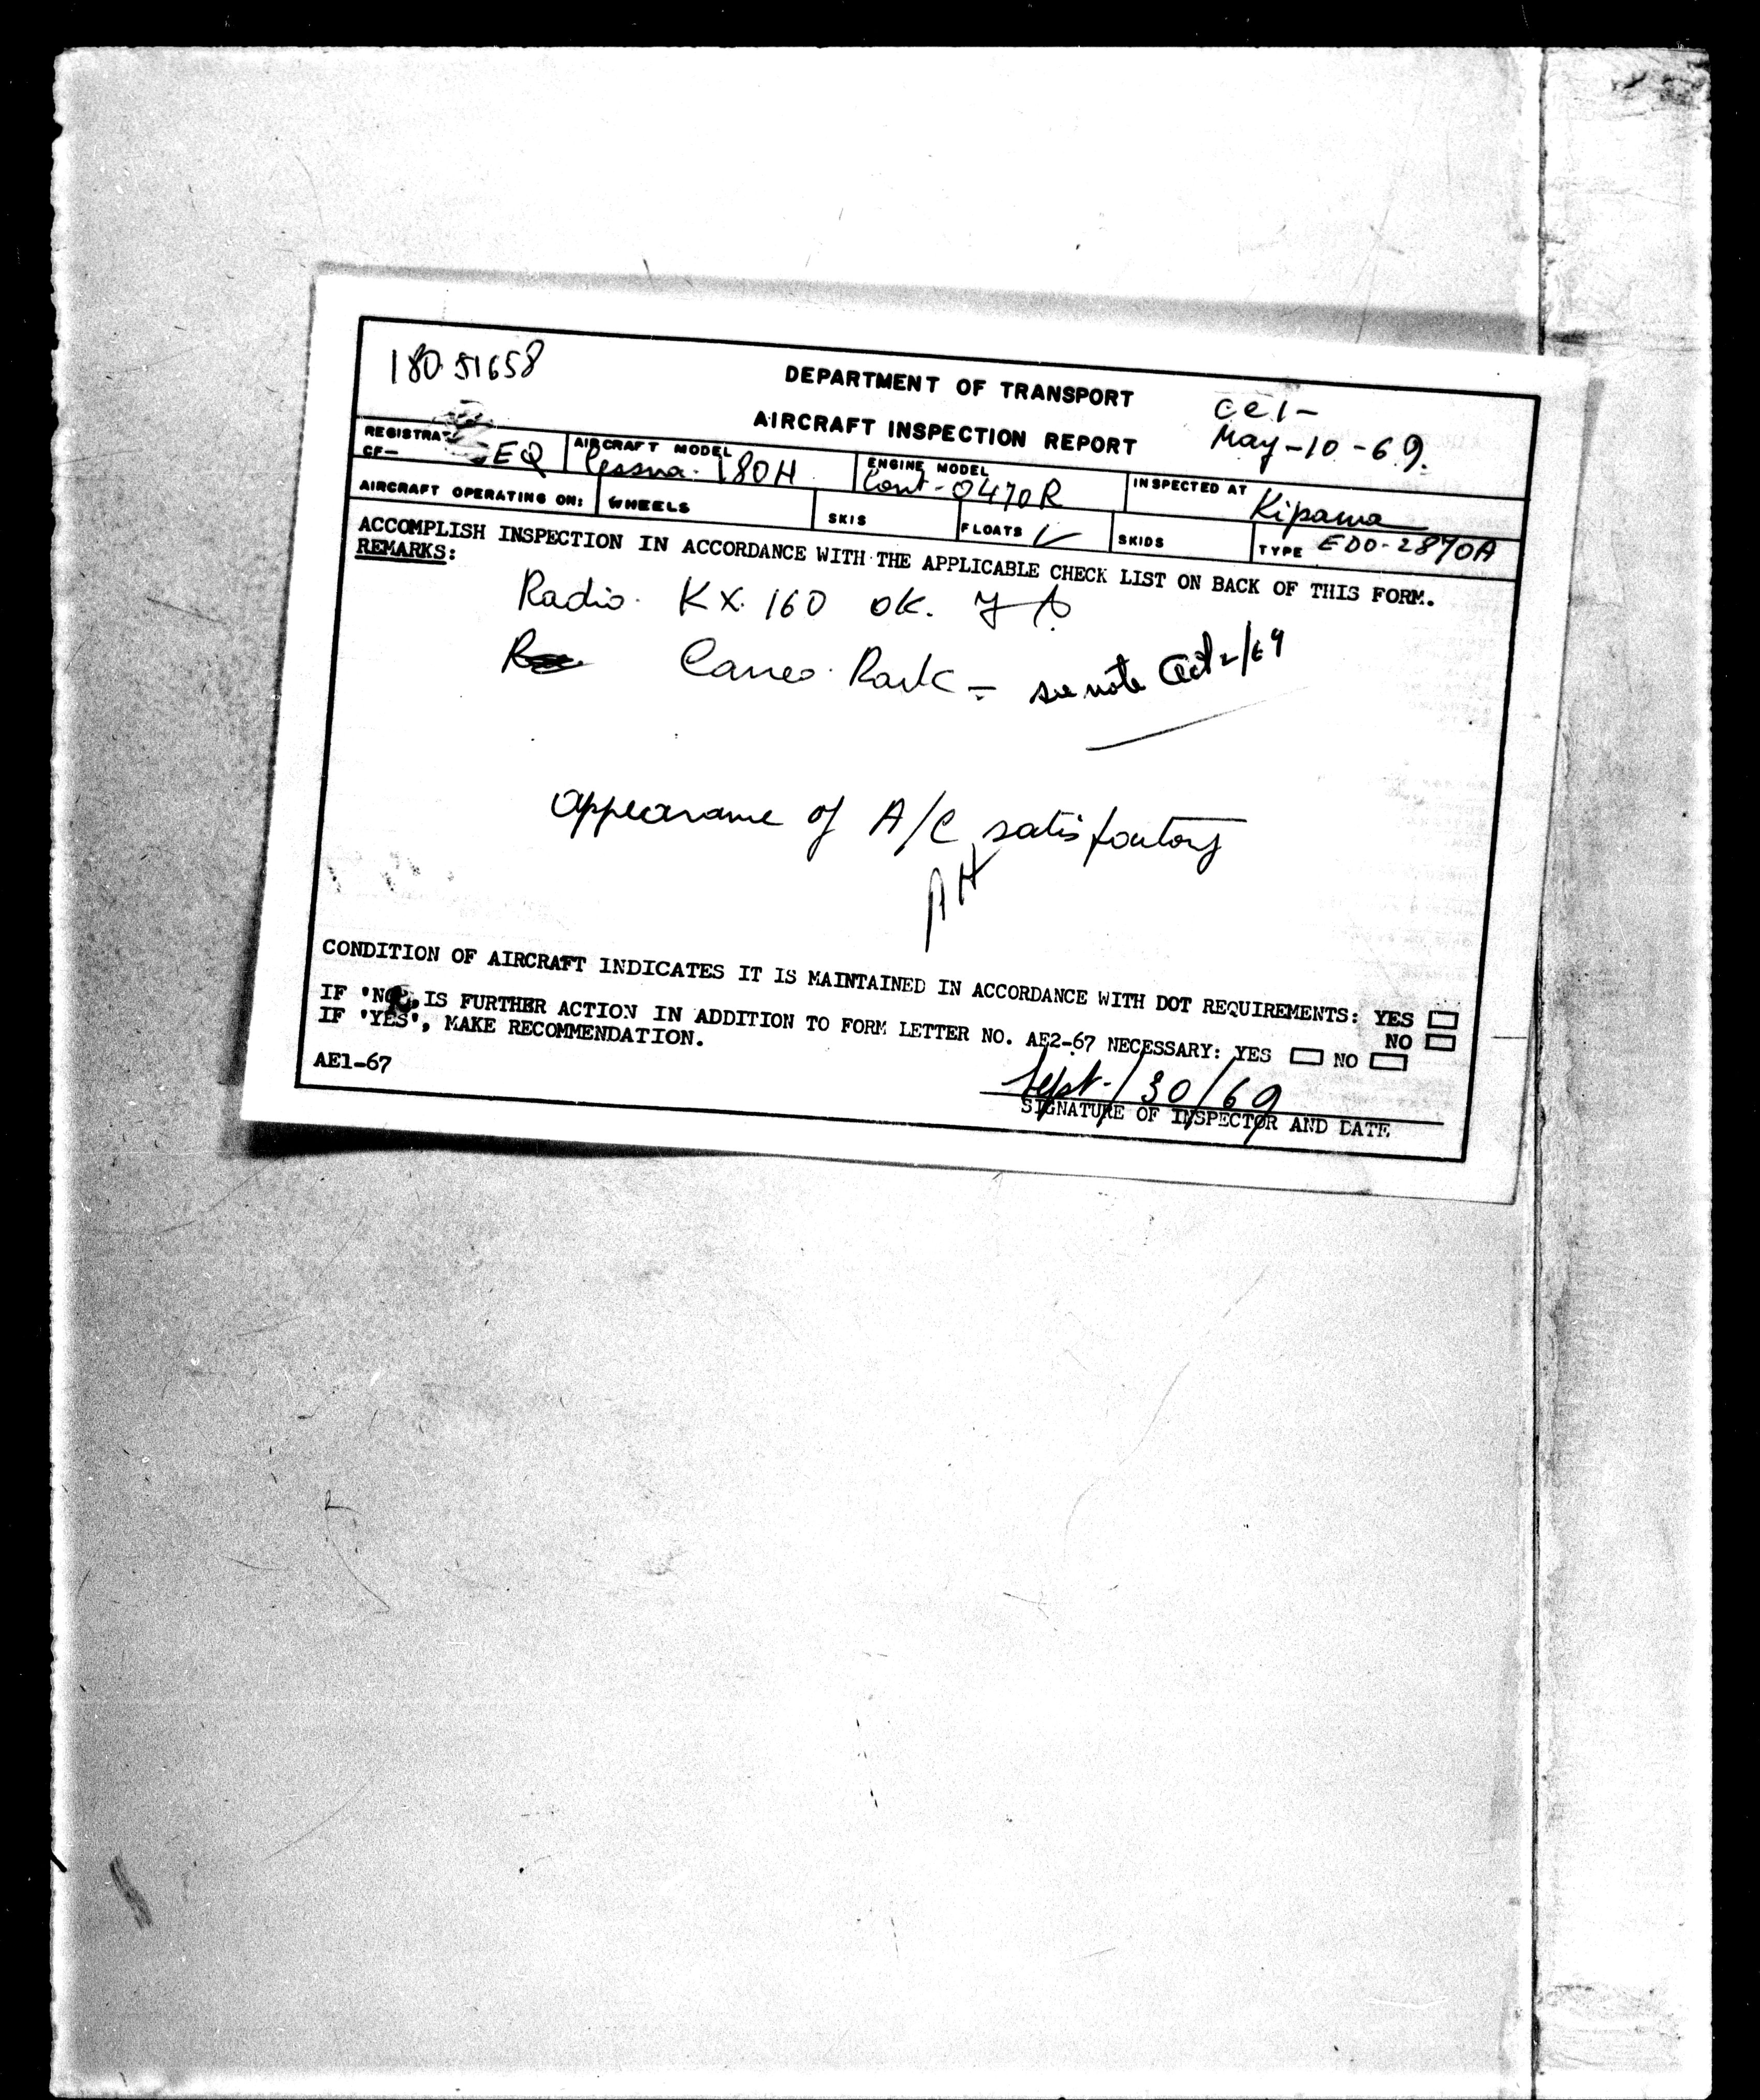 180 51658
DEPARTMENT OF TRANSPORT
AIRCRAFT INSPECTION REPORT
CC1-
May-10-69.
REGISTRAT
CF- EQ
AIRCRAFT MODEL
Cessna. 180H
ENGINE MODEL
Cont-0470R
INSPECTED AT
Kipawa
AIRCRAFT OPERATING ON:
WHEELS
SKIS
FLOATS ✓
SKIDS
TYPE EDO-2870A
ACCOMPLISH INSPECTION IN ACCORDANCE WITH THE APPLICABLE CHECK LIST ON BACK OF THIS FORM.
REMARKS:
Radio. KX.160 OK.
Canoe Rack = see note Oct 2/69
appearance of A/C satisfactory
CONDITION OF AIRCRAFT INDICATES IT IS MAINTAINED IN ACCORDANCE WITH DOT REQUIREMENTS: YES
NO
IF 'NO', IS FURTHER ACTION IN ADDITION TO FORM LETTER NO. AE2-67 NECESSARY: YES NO
IF 'YES', MAKE RECOMMENDATION.
AE1-67
Sept-/30/69
SIGNATURE OF INSPECTOR AND DATE